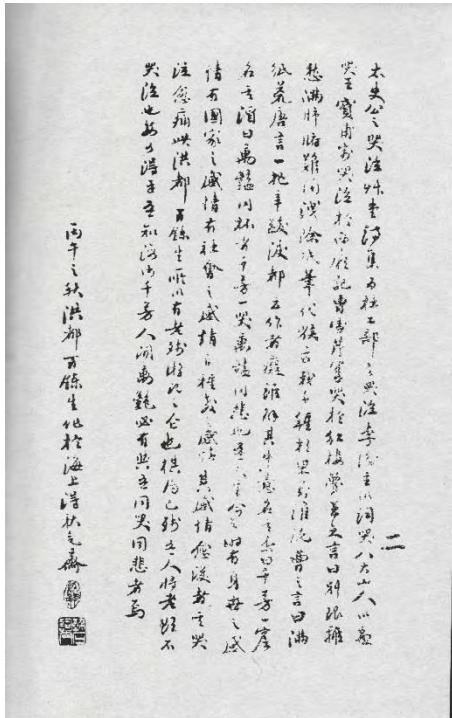 太史公之哭泣艸堂詩集為杜工部之哭泣李後主以詞哭八大山人以畫
哭王實甫寄哭泣於西廂記曹雪芹寄哭於紅樓夢王之言曰別恨離
愁滿肺腑難陶洩除紙筆代喉舌我千種相思向誰說曹之言曰滿
紙荒唐言一把辛酸淚都云作者癡誰解其中意名其茶曰千芳一窟
名其酒曰萬豔同杯者千芳一哭萬豔同悲也吾人生今之時有身世之感
情有國家之感情有社會之感情有種教之感情其感情愈深者其哭
泣愈痛此洪都百鍊生所以有老殘遊記之作也棋局已殘吾人將老欲不
哭泣也得乎吾知海內千芳人間萬豔必有與吾同哭同悲者焉
丙午之秋洪都百鍊生作於海上得秋气齋
二